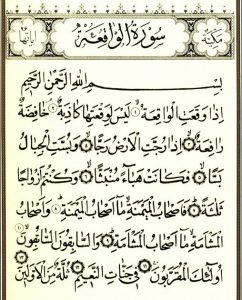 مكية سُورَةُ الوَاقِعَة آياتها
بِسْمِ اللهِ الرَّحْمٰنِ الرَّحِيمِ
إِذَا وَقَعَتِ الْوَاقِعَةُ لَيْسَ لِوَقْعَتِهَا كَاذِبَةٌ خَافِضَةٌ
رَافِعَةٌ إِذَا رُجَّتِ الْأَرْضُ رَجًّا وَبُسَّتِ الْجِبَالُ
بَسًّا فَكَانَتْ هَبَاءً مُنْبَثًّا وَكُنْتُمْ أَزْوَاجًا
ثَلٰثَةً فَأَصْحَابُ الْمَيْمَنَةِ مَا أَصْحَابُ الْمَيْمَنَةِ وَأَصْحَابُ
الْمَشْأَمَةِ مَا أَصْحَابُ الْمَشْأَمَةِ وَالسَّابِقُونَ السَّابِقُونَ
أُولٰئِكَ الْمُقَرَّبُونَ فِي جَنَّاتِ النَّعِيمِ ثُلَّةٌ مِنَ الْأَوَّلِينَ